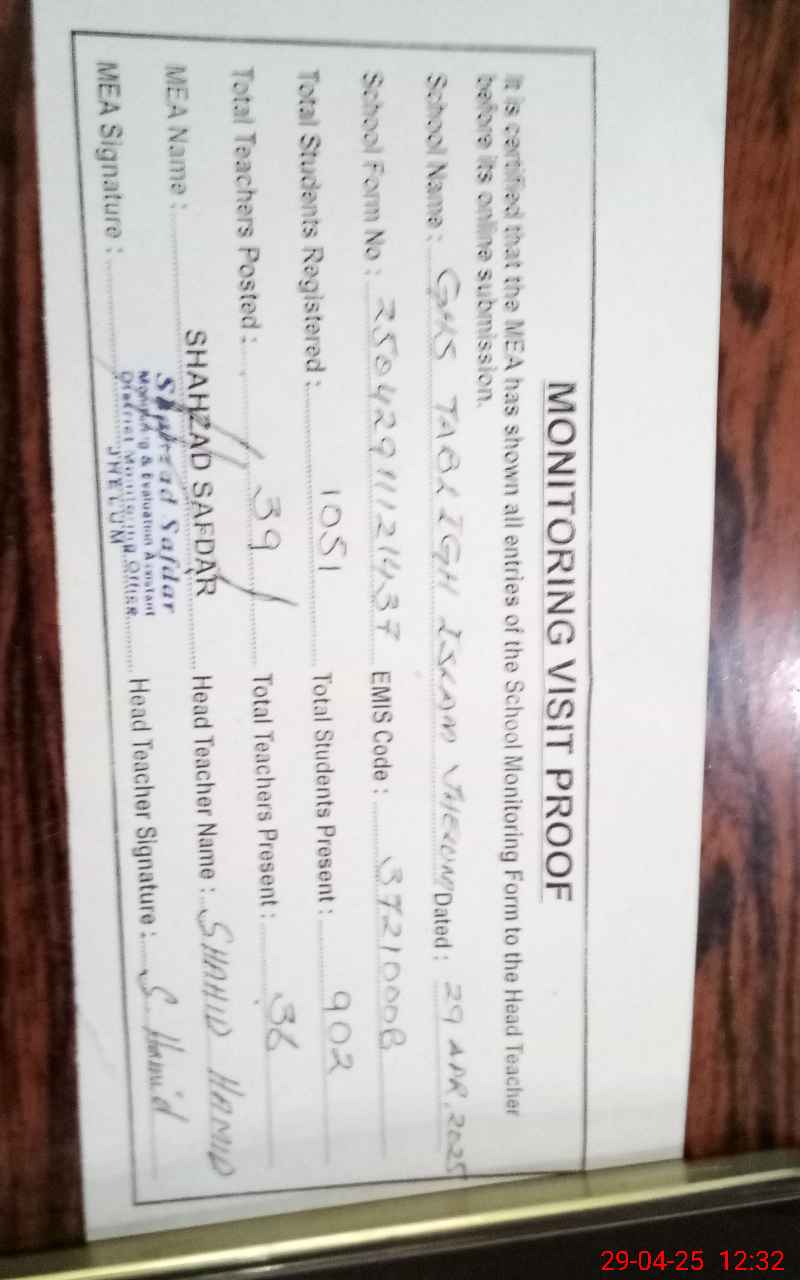 MONITORING VISIT PROOF
It is certified that the MEA has shown all entries of the School Monitoring Form to the Head Teacher
before its online submission.
School Name : GHS TABLIGH ISLAM JHELUM Dated : 29 APR, 2025
School Form No : EMIS Code : 37210008
Total Students Registered : 1051 Total Students Present : 902
Total Teachers Posted : 39 Total Teachers Present : 36
MEA Name : SHAHZAD SAFDAR Head Teacher Name : SHAHID HAMID
MEA Signature : Head Teacher Signature : S. Hamid
Shahzad Safdar
Monitoring & Evaluation Assistant
District Monitoring Officer
JHELUM
29-04-25 12:32